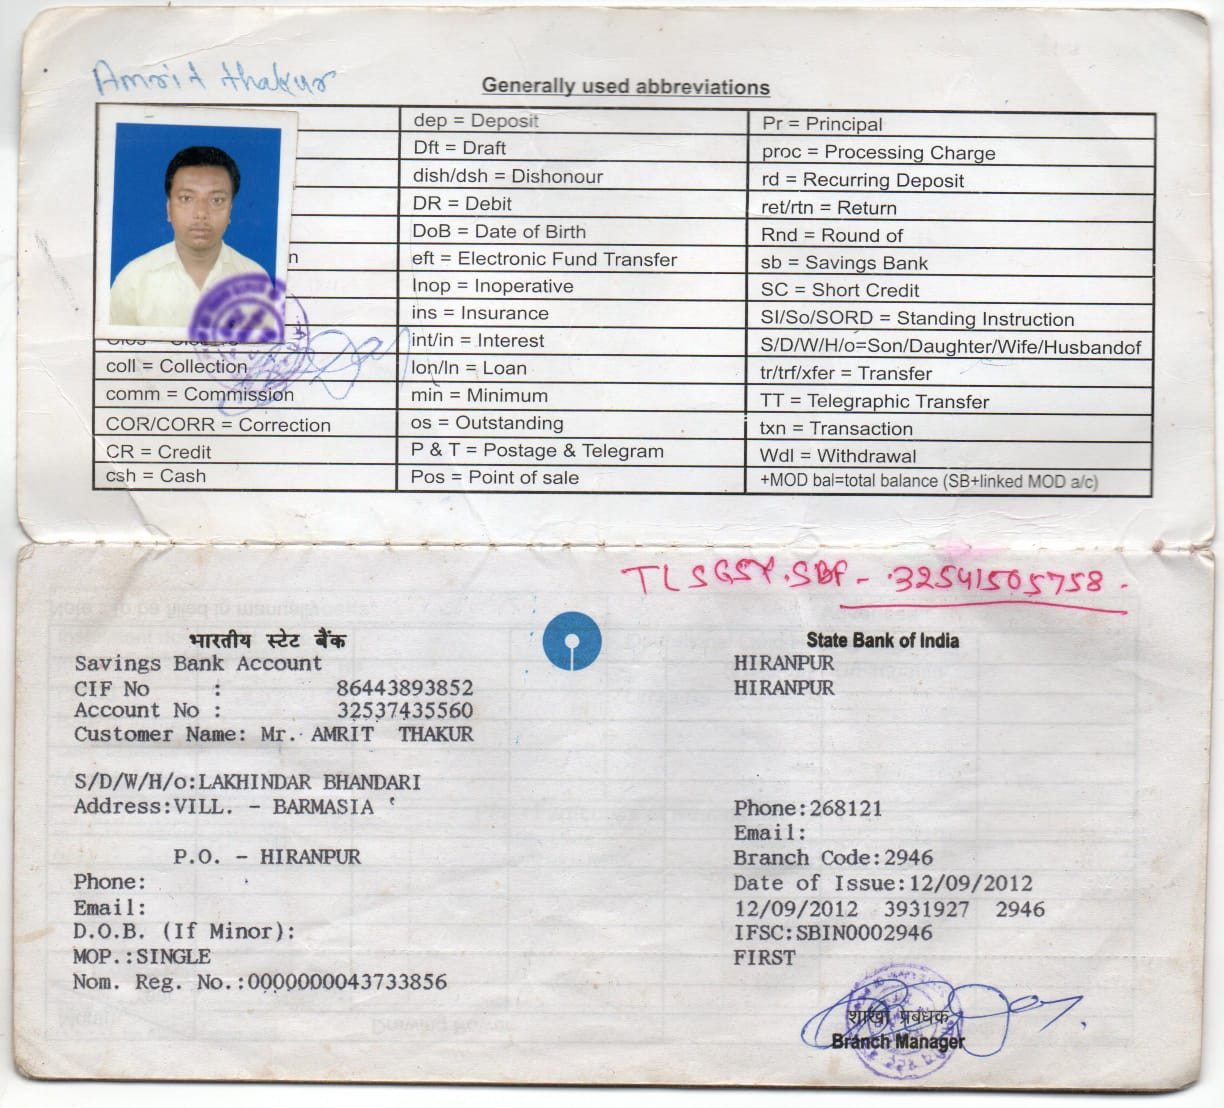 Amrit thakur
Generally used abbreviations
dep = Deposit
Pr = Principal
Dft = Draft
proc = Processing Charge
dish/dsh = Dishonour
rd = Recurring Deposit
DR = Debit
ret/rtn = Return
DoB = Date of Birth
Rnd = Round of
n
eft = Electronic Fund Transfer
sb = Savings Bank
Inop = Inoperative
SC = Short Credit
ins = Insurance
SI/So/SORD = Standing Instruction
int/in = Interest
S/D/W/H/o=Son/Daughter/Wife/Husbandof
coll = Collection
lon/ln = Loan
tr/trf/xfer = Transfer
comm = Commission
min = Minimum
TT = Telegraphic Transfer
COR/CORR = Correction
os = Outstanding
txn = Transaction
CR = Credit
P & T = Postage & Telegram
Wdl = Withdrawal
csh = Cash
Pos = Point of sale
+MOD bal=total balance (SB+linked MOD a/c)
32541505758
भारतीय स्टेट बैंक
State Bank of India
Savings Bank Account
HIRANPUR
CIF No : 86443893852
HIRANPUR
Account No : 32537435560
Customer Name: Mr. AMRIT THAKUR
S/D/W/H/o:LAKHINDAR BHANDARI
Address:VILL. - BARMASIA
Phone:268121
Email:
P.O. - HIRANPUR
Branch Code:2946
Phone:
Date of Issue:12/09/2012
Email:
12/09/2012 3931927 2946
D.O.B. (If Minor):
IFSC:SBIN0002946
MOP.:SINGLE
FIRST
Nom. Reg. No.:0000000043733856
शाखा प्रबंधक
Branch Manager